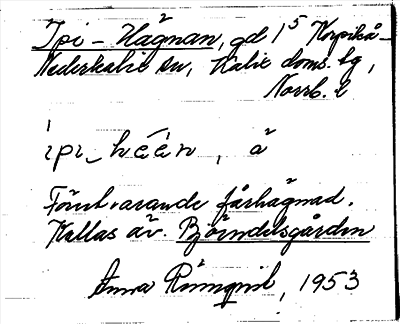 Ipi-Hägnan, gd 1⁵ Korpikå-
Nederkalix sn, Kalix doms. lg,
Norrb. l
ipi-hèèn, å
Förutvarande fårhägnad.
Kallas äv. Björndelsgården
Anna Rönnqvist, 1953